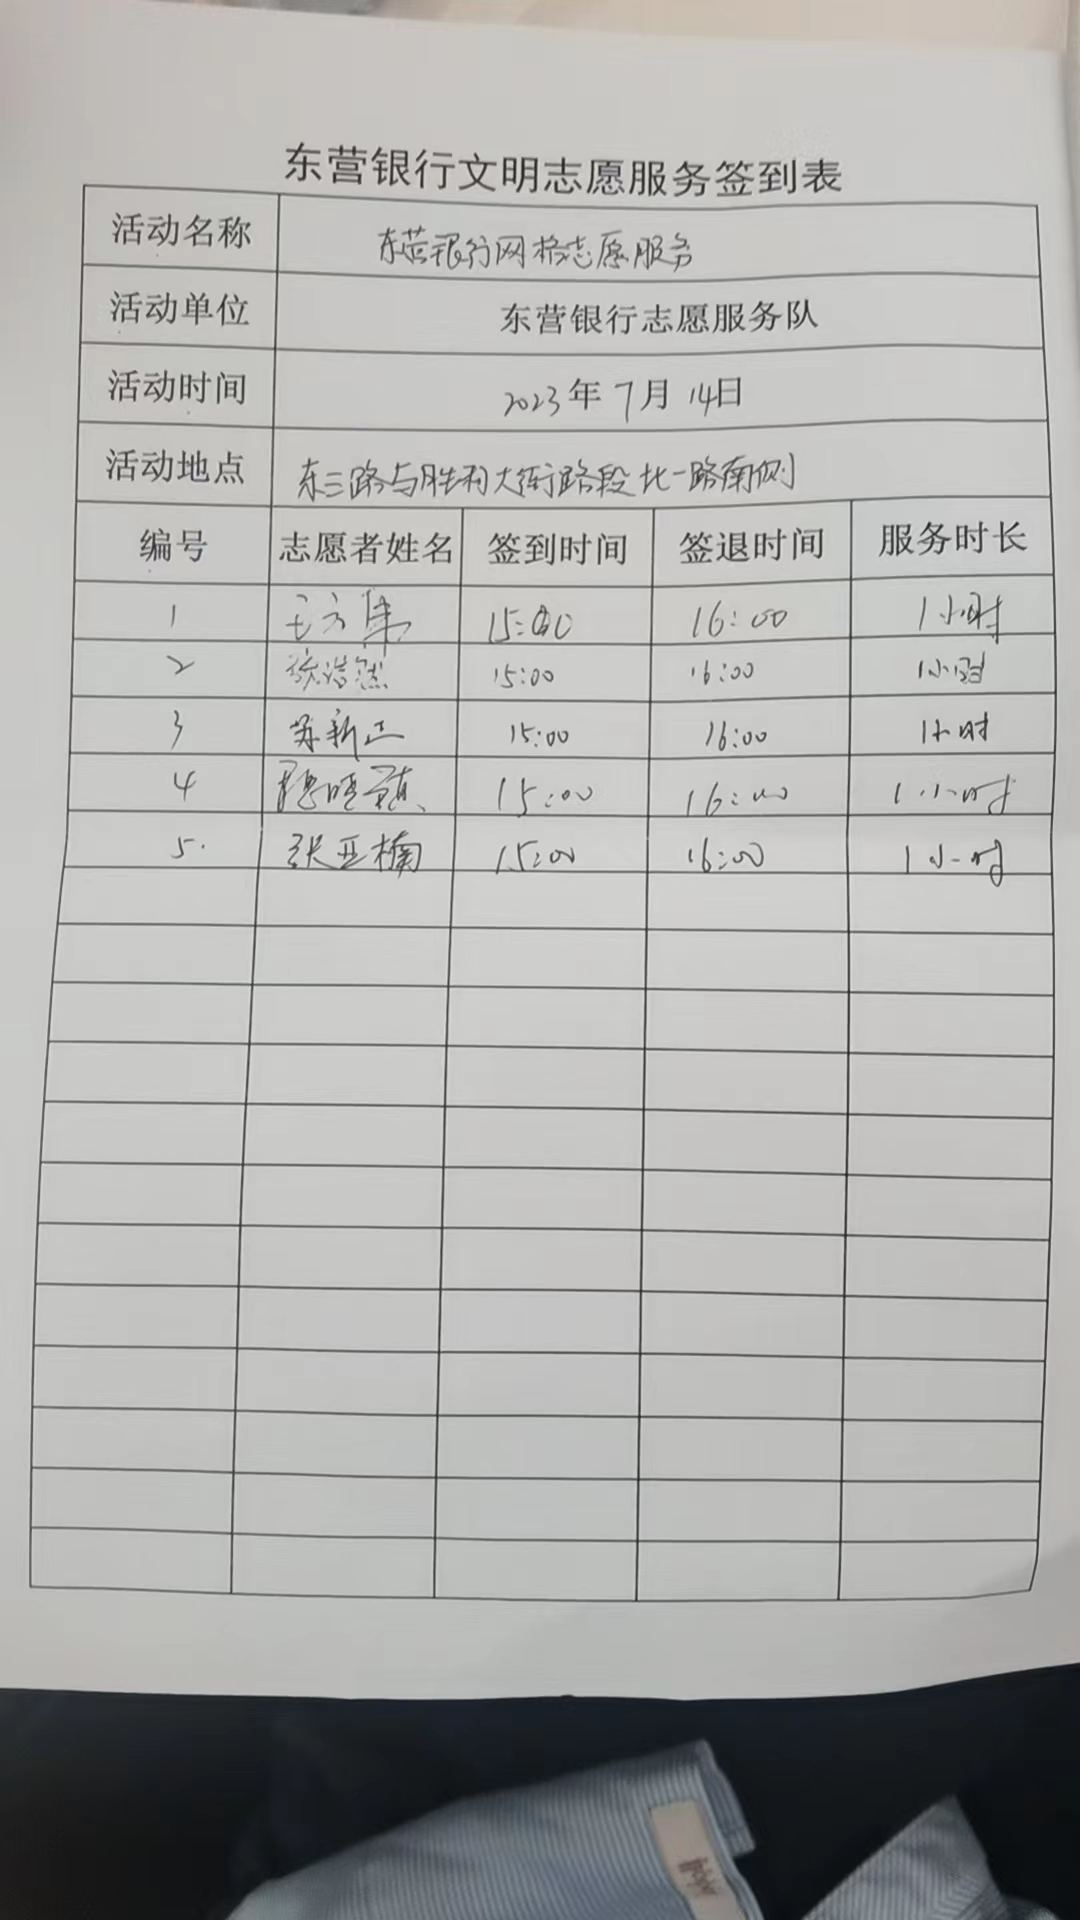 东营银行文明志愿服务签到表
活动名称 东营银行网格志愿服务
活动单位 东营银行志愿服务队
活动时间 2023年7月14日
活动地点 东三路与胜利大街路段北一路南侧
编号 志愿者姓名 签到时间 签退时间 服务时长
1 15:00 16:00 1小时
2 浩然 15:00 16:00 1小时
3 苏新正 15:00 16:00 1小时
4 15:00 16:00 1小时
5. 张亚楠 15:00 16:00 1小时